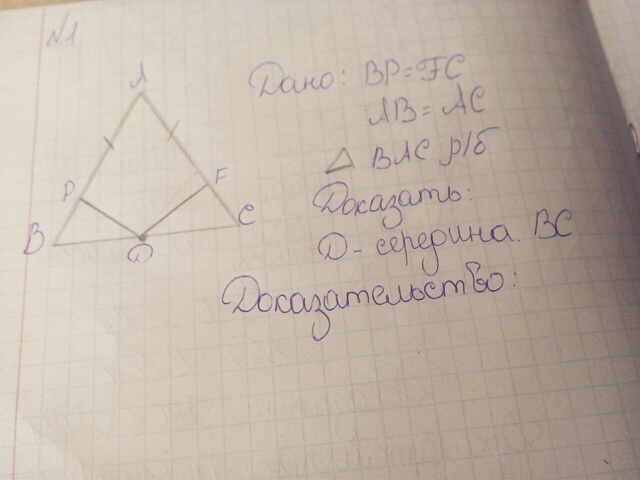 N1
A
Дано: BP=FC
AB=AC
△ BAC р/б
P
F
Доказать:
B
C
D
D- середина. BC
Доказательство: